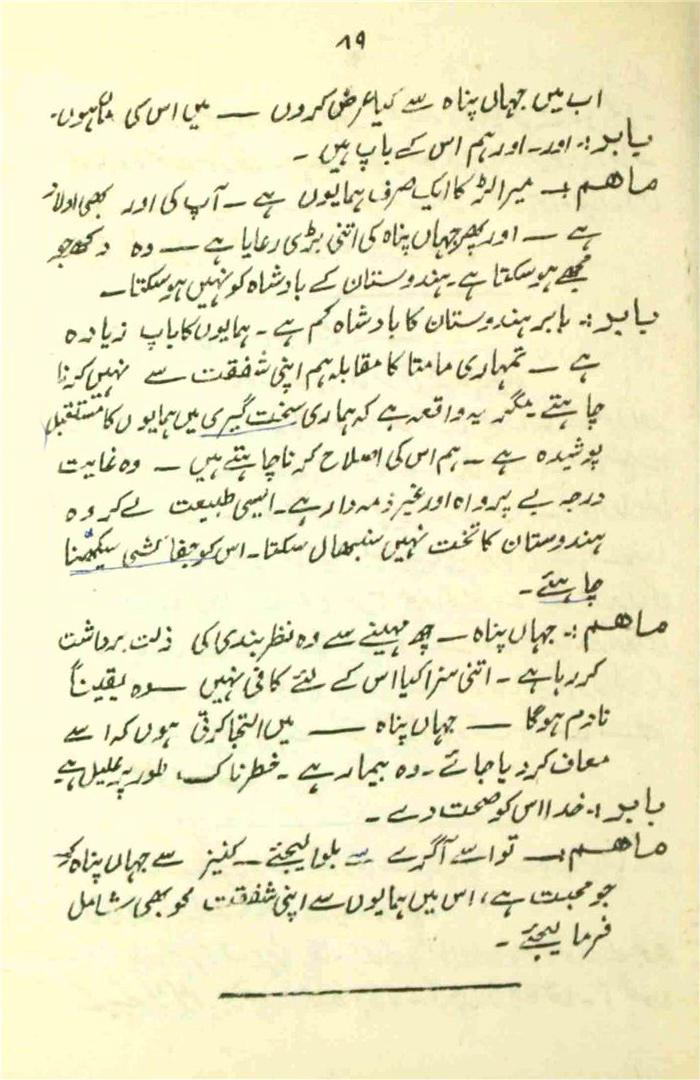 ۸۹
اب میں جہاں پناہ سے کیا عرض کروں — میں اس کی ماں ہوں۔
بابر:۔ اور۔ اور ہم اس کے باپ ہیں ۔
ماھم :۔ میرا لڑکا ایک صرف ہمایوں ہے ۔ آپ کی اور بھی اولاد
ہے — اور پھر جہاں پناہ کی اتنی بڑی رعایا ہے — وہ دکھ جو
مجھے ہو سکتا ہے۔ ہندوستان کے بادشاہ کو نہیں ہو سکتا۔
بابر:۔ بابر ہندوستان کا بادشاہ کم ہے ۔ ہمایوں کا باپ زیادہ
ہے — تمہاری مامتا کا مقابلہ ہم اپنی شفقت سے نہیں کرنا
چاہتے۔ مگر یہ واقعہ ہے کہ ہماری سخت گیری میں ہمایوں کا مستقبل
پوشیدہ ہے ۔ ہم اس کی اصلاح کرنا چاہتے ہیں — وہ غایت
درجہ بے پرواہ اور غیر ذمہ دار ہے۔ ایسی طبیعت لے کر وہ
ہندوستان کا تخت نہیں سنبھال سکتا۔ اس کو جفا کشی سیکھنا
چاہئے ۔
ماھم :۔ جہاں پناہ — چھ مہینے سے وہ نظر بندی کی ذلت برداشت
کر رہا ہے ۔ اتنی سزا کیا اس کے لئے کافی نہیں — وہ یقیناً
نادم ہوگا — جہاں پناہ — میں التجا کرتی ہوں کہ اسے
معاف کر دیا جائے ۔ وہ بیمار ہے ۔ خطرناک طور پر علیل ہے
بابر :۔ خدا اس کو صحت دے ۔
ماھم :۔ تو اسے آگرے سے بلوا لیجئے ۔ کنیز سے جہاں پناہ کو
جو محبت ہے، اس میں ہمایوں سے اپنی شفقت کو بھی شامل
فرما لیجئے ۔